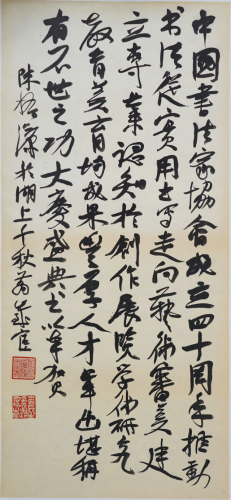 中國書法家協會成立四十周年推動
书法從實用书写走向藝術審美建
立專業認知於創作展覽学术研究
教育美育均效果豐厚人才輩出堪稱
有不世之功大慶盛典書以筆賀
陳振濂於湖上千秋萬歲宦